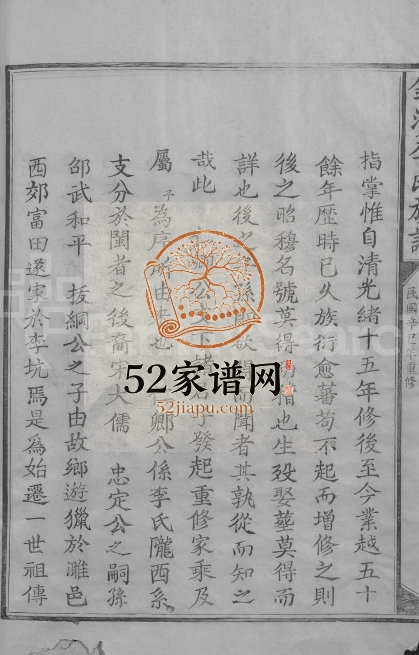 民國辛口口重修
指掌惟自清光緒十五年修後至今業越五十
餘年歷時已久族衍愈蕃苟不起而增修之則
後之昭穆名號莫得而指也生歿娶塟莫得而
詳也後之子孫而聞者其孰從而知之
哉此公下發起重修家乘及
屬予為序由卿公係李氏隴西系
支分於閩者之後裔宋大儒 忠定公之嗣孫
邵武和平 援綱公之子由故鄉遊獵於濉邑
西郊富田遂家於李坑焉是為始遷一世祖傳
52家谱网
52jiapu.com